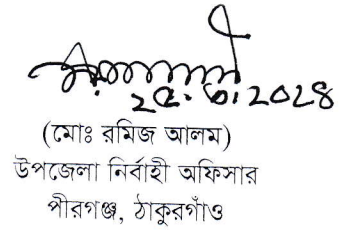 ২৫.৩.২০২৪
(মোঃ রমিজ আলম)
উপজেলা নির্বাহী অফিসার
পীরগঞ্জ, ঠাকুরগাঁও